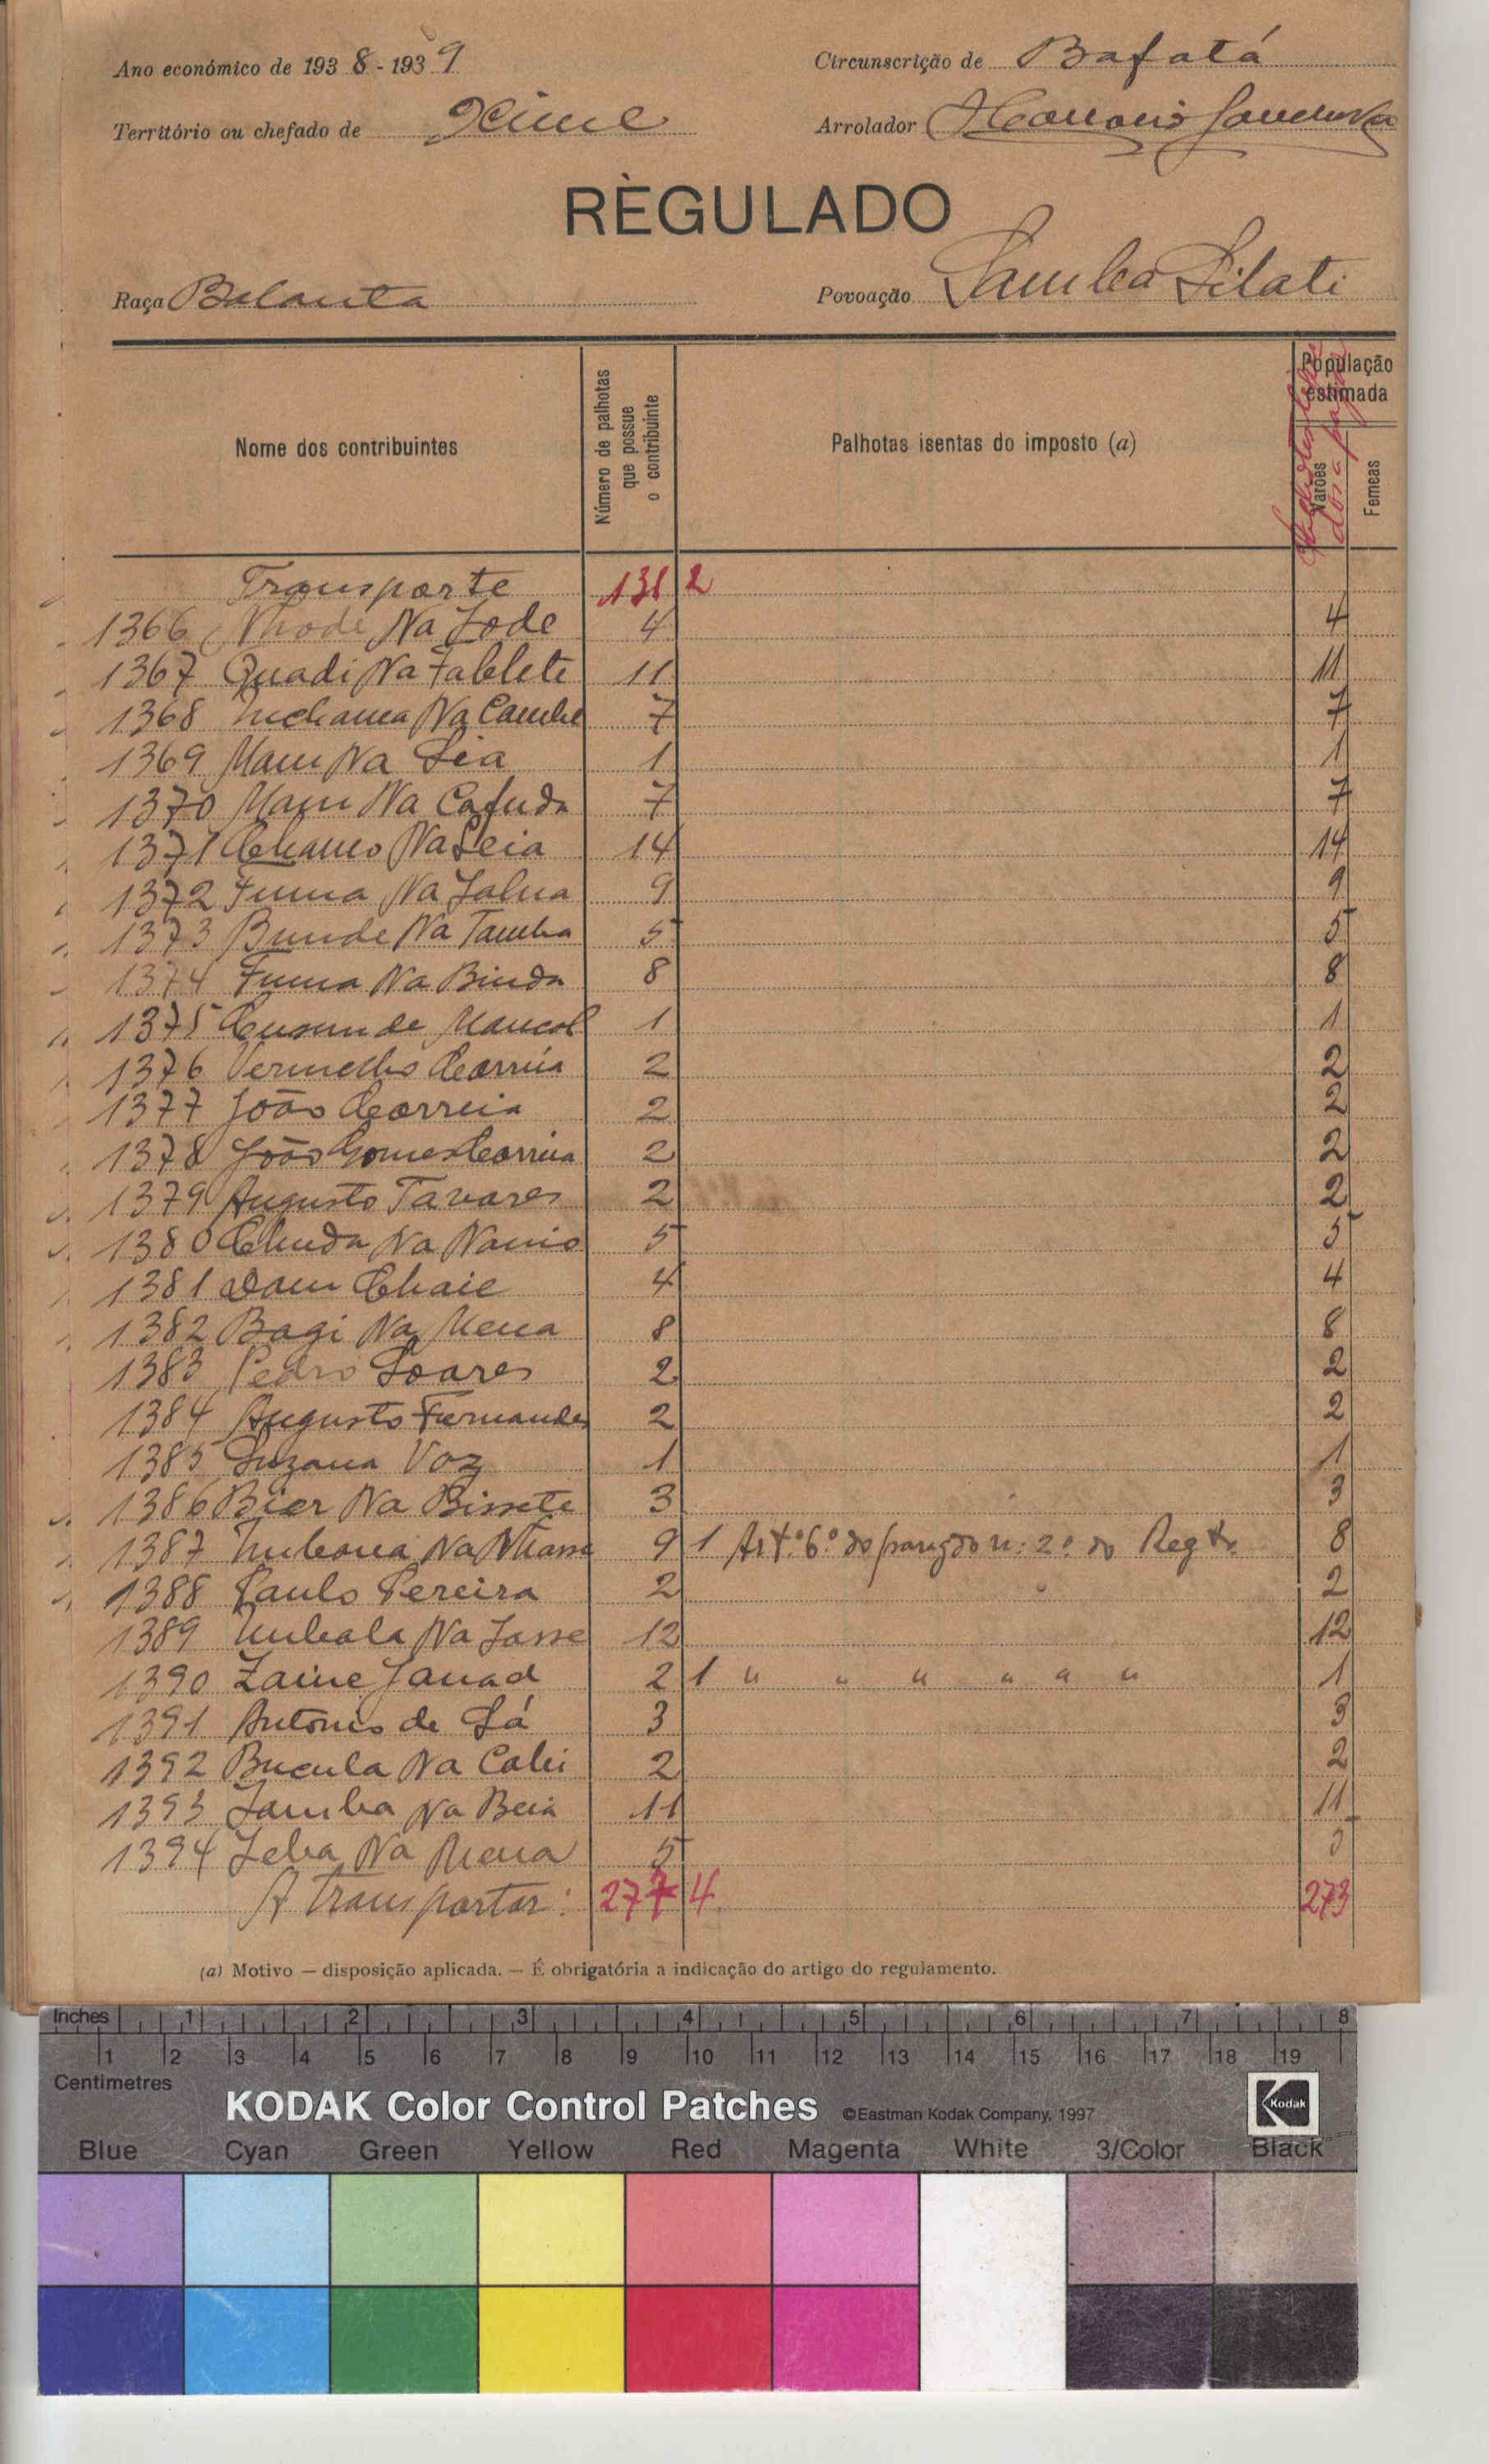 Ano económico de 1938-1939
Circunscrição de Bafatá
Território ou chefado de Xime
Arrolador
RÈGULADO
Raça Balanta
Povoação Samba Silati
Nome dos contribuintes
Número de palhotas que possue o contribuinte
Palhotas isentas do imposto (a)
População estimada
Varões
Femeas
Transporte 131 2
1366 Nhode Na Jode 4 4
1367 Quadi Na Fablete 11 11
1368 Na 7 7
1369 Mam Na Sia 1 1
1370 Mam Na Cafuda 7 7
1371 Na Seia 14 14
1372 Fuma Na Jalna 9 9
1373 Bunde Na Tamba 5 5
1374 Fuma Na Binda 8 8
1375 1 1
1376 Vermelho Correia 2 2
1377 João Correia 2 2
1378 João Gomes Correia 2 2
1379 Augusto Tavares 2 2
1380 Chuda Na Namio 5 5
1381 Dam Chaie 4 4
1382 Bagi Na Mena 8 8
1383 Pedro Soares 2 2
1384 Augusto Fernandes 2 2
1385 Suzana Voz 1 1
1386 Bier Na Bissete 3 3
1387 Na 9 1 Artº 6º do n: 2º do Regto. 8
1388 Paulo Pereira 2 2
1389 Umbala Na Jasse 12 12
1390 2 1 " " " " " " 1
1391 Antonio de Sá 3 3
1392 Bucula Na Cabi 2 2
1393 Jamba Na Beia 11 11
1394 Jeba Na Mena 5 5
A transportar: 277 4 273
(a) Motivo — disposição aplicada. — É obrigatória a indicação do artigo do regulamento.
Inches 1 2 3 4 5 6 7 8
1 2 3 4 5 6 7 8 9 10 11 12 13 14 15 16 17 18 19
Centimetres
KODAK Color Control Patches ©Eastman Kodak Company, 1997 Kodak
Blue Cyan Green Yellow Red Magenta White 3/Color Black